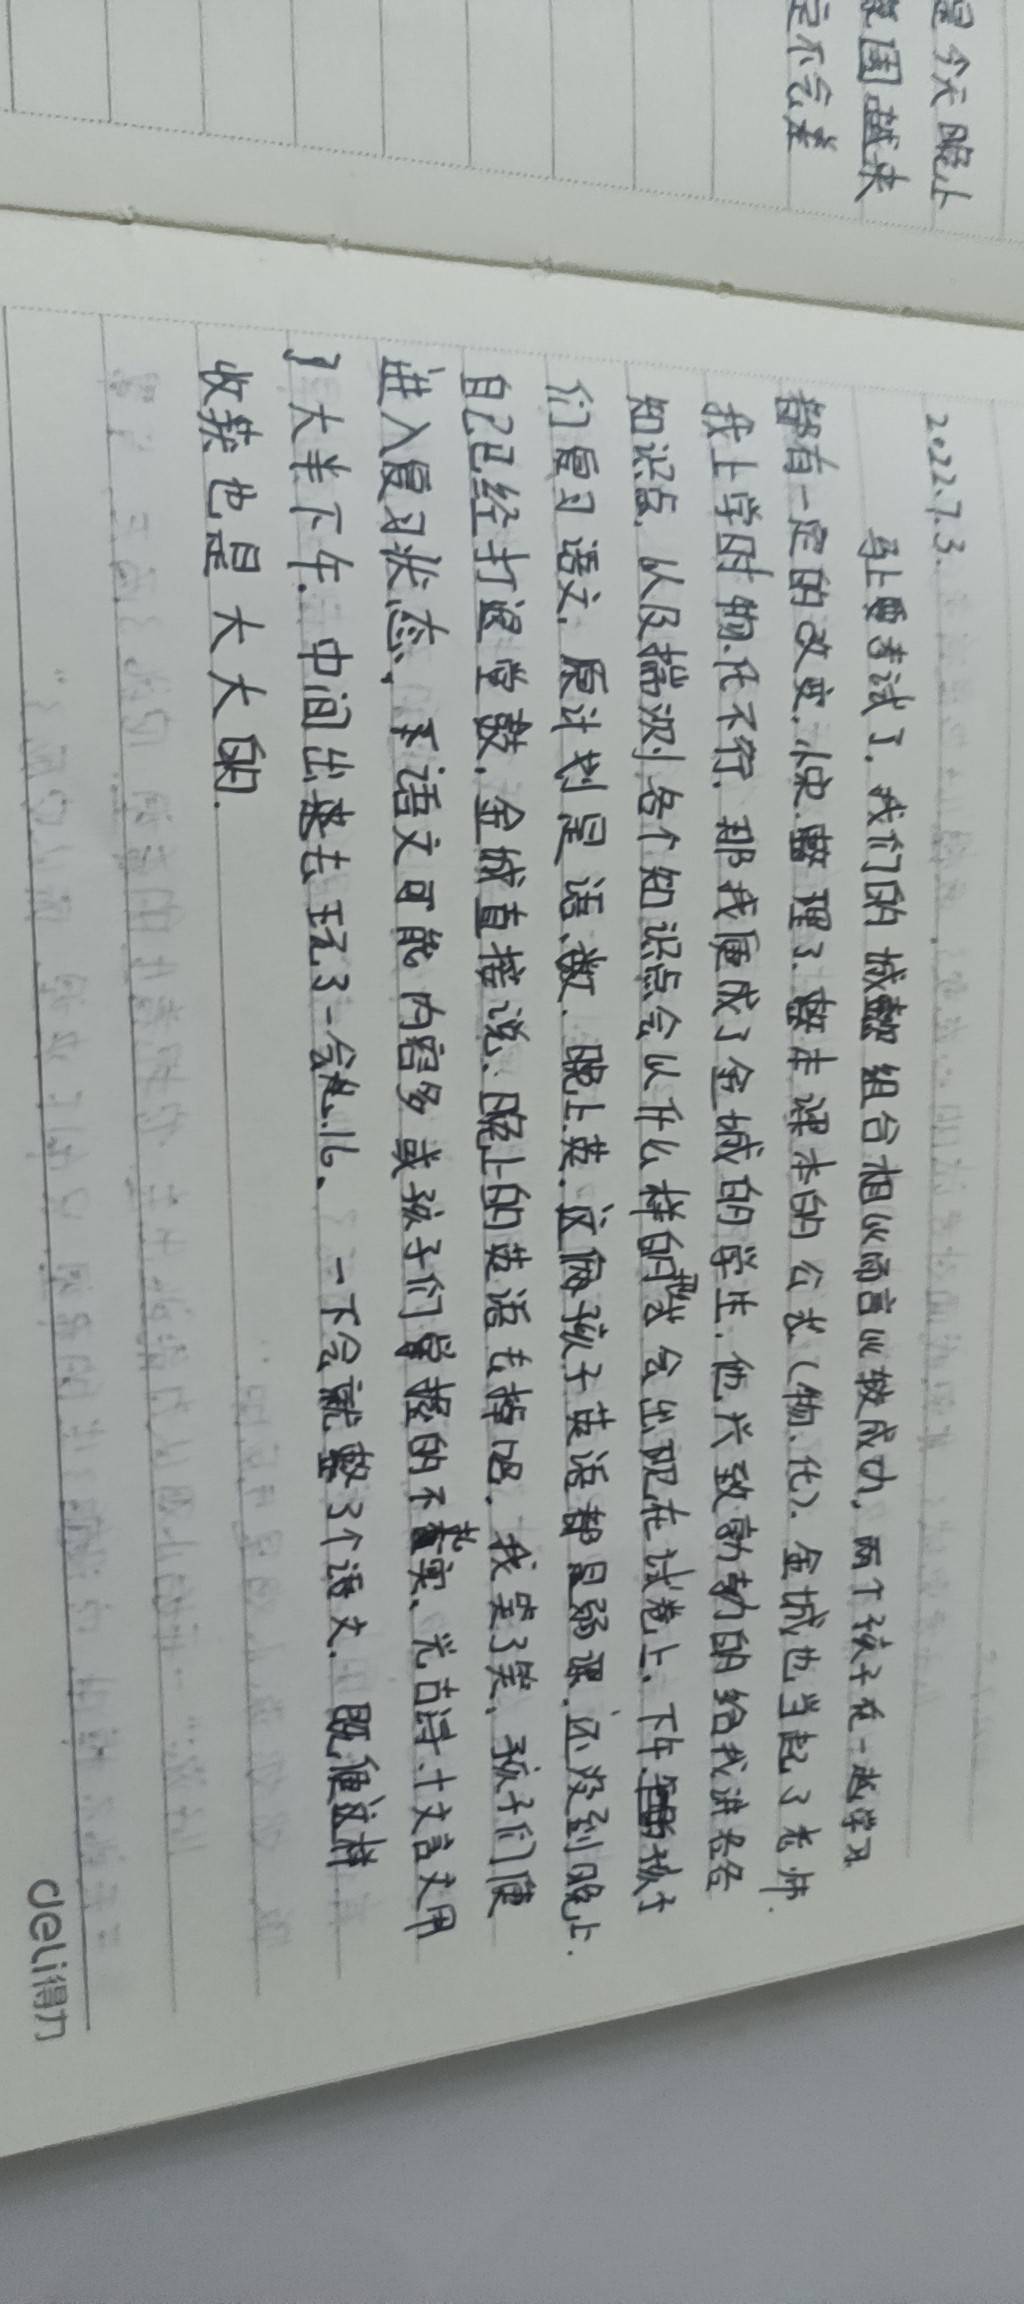 是今天晚上
氛围越来
定不会差
2022.7.3.
马上要考试了，我们的城懿组合相似而言比较成功，两个孩子在一起学习
都有一定的改变，整理了整本课本的公式（物、化）。金城也当起了老师.
我上学时物、化不行，那我便成了金城的学生，他兴致勃勃的给我讲着各
知识点，以及揣测各个知识点会以什么样的形式会出现在试卷上，下午孩子
们复习语文，原计划是语、数，晚上英，这俩孩子英语都是弱课，还没到晚上.
自己已经打退堂鼓，金城直接说：晚上的英语去掉吧，我笑了笑，孩子们便
进入复习状态，语文可能内容多或孩子们掌握的不扎实，光古诗、十文言文用
了大半下午，中间出去玩了一会儿，一下会就整了个语文，既便这样
收获也是大大的.
deli得力